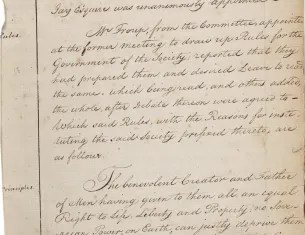 Jay Esquire was unanimously appointed
Rules.
Mr Troup, from the Committee, appointed
at the former meeting to draw up Rules for the
Government of the Society; reported that they
had prepared them and desired Leave to read
the same. which being read, and others added,
the whole, after Debate thereon were agreed to—
Which said Rules, with the Reasons for insti-
tuting the said Society prefixed thereto, are
as follow.
Principles
The benevolent Creator and Father
of Men having given to them all an equal
Right to Life, Liberty and Property; no Sove-
reign Power, on Earth, can justly deprive them